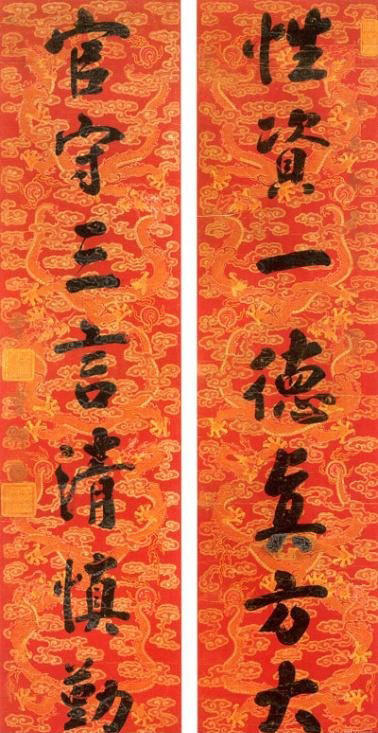 性資一德直方大
官守三言清慎勤